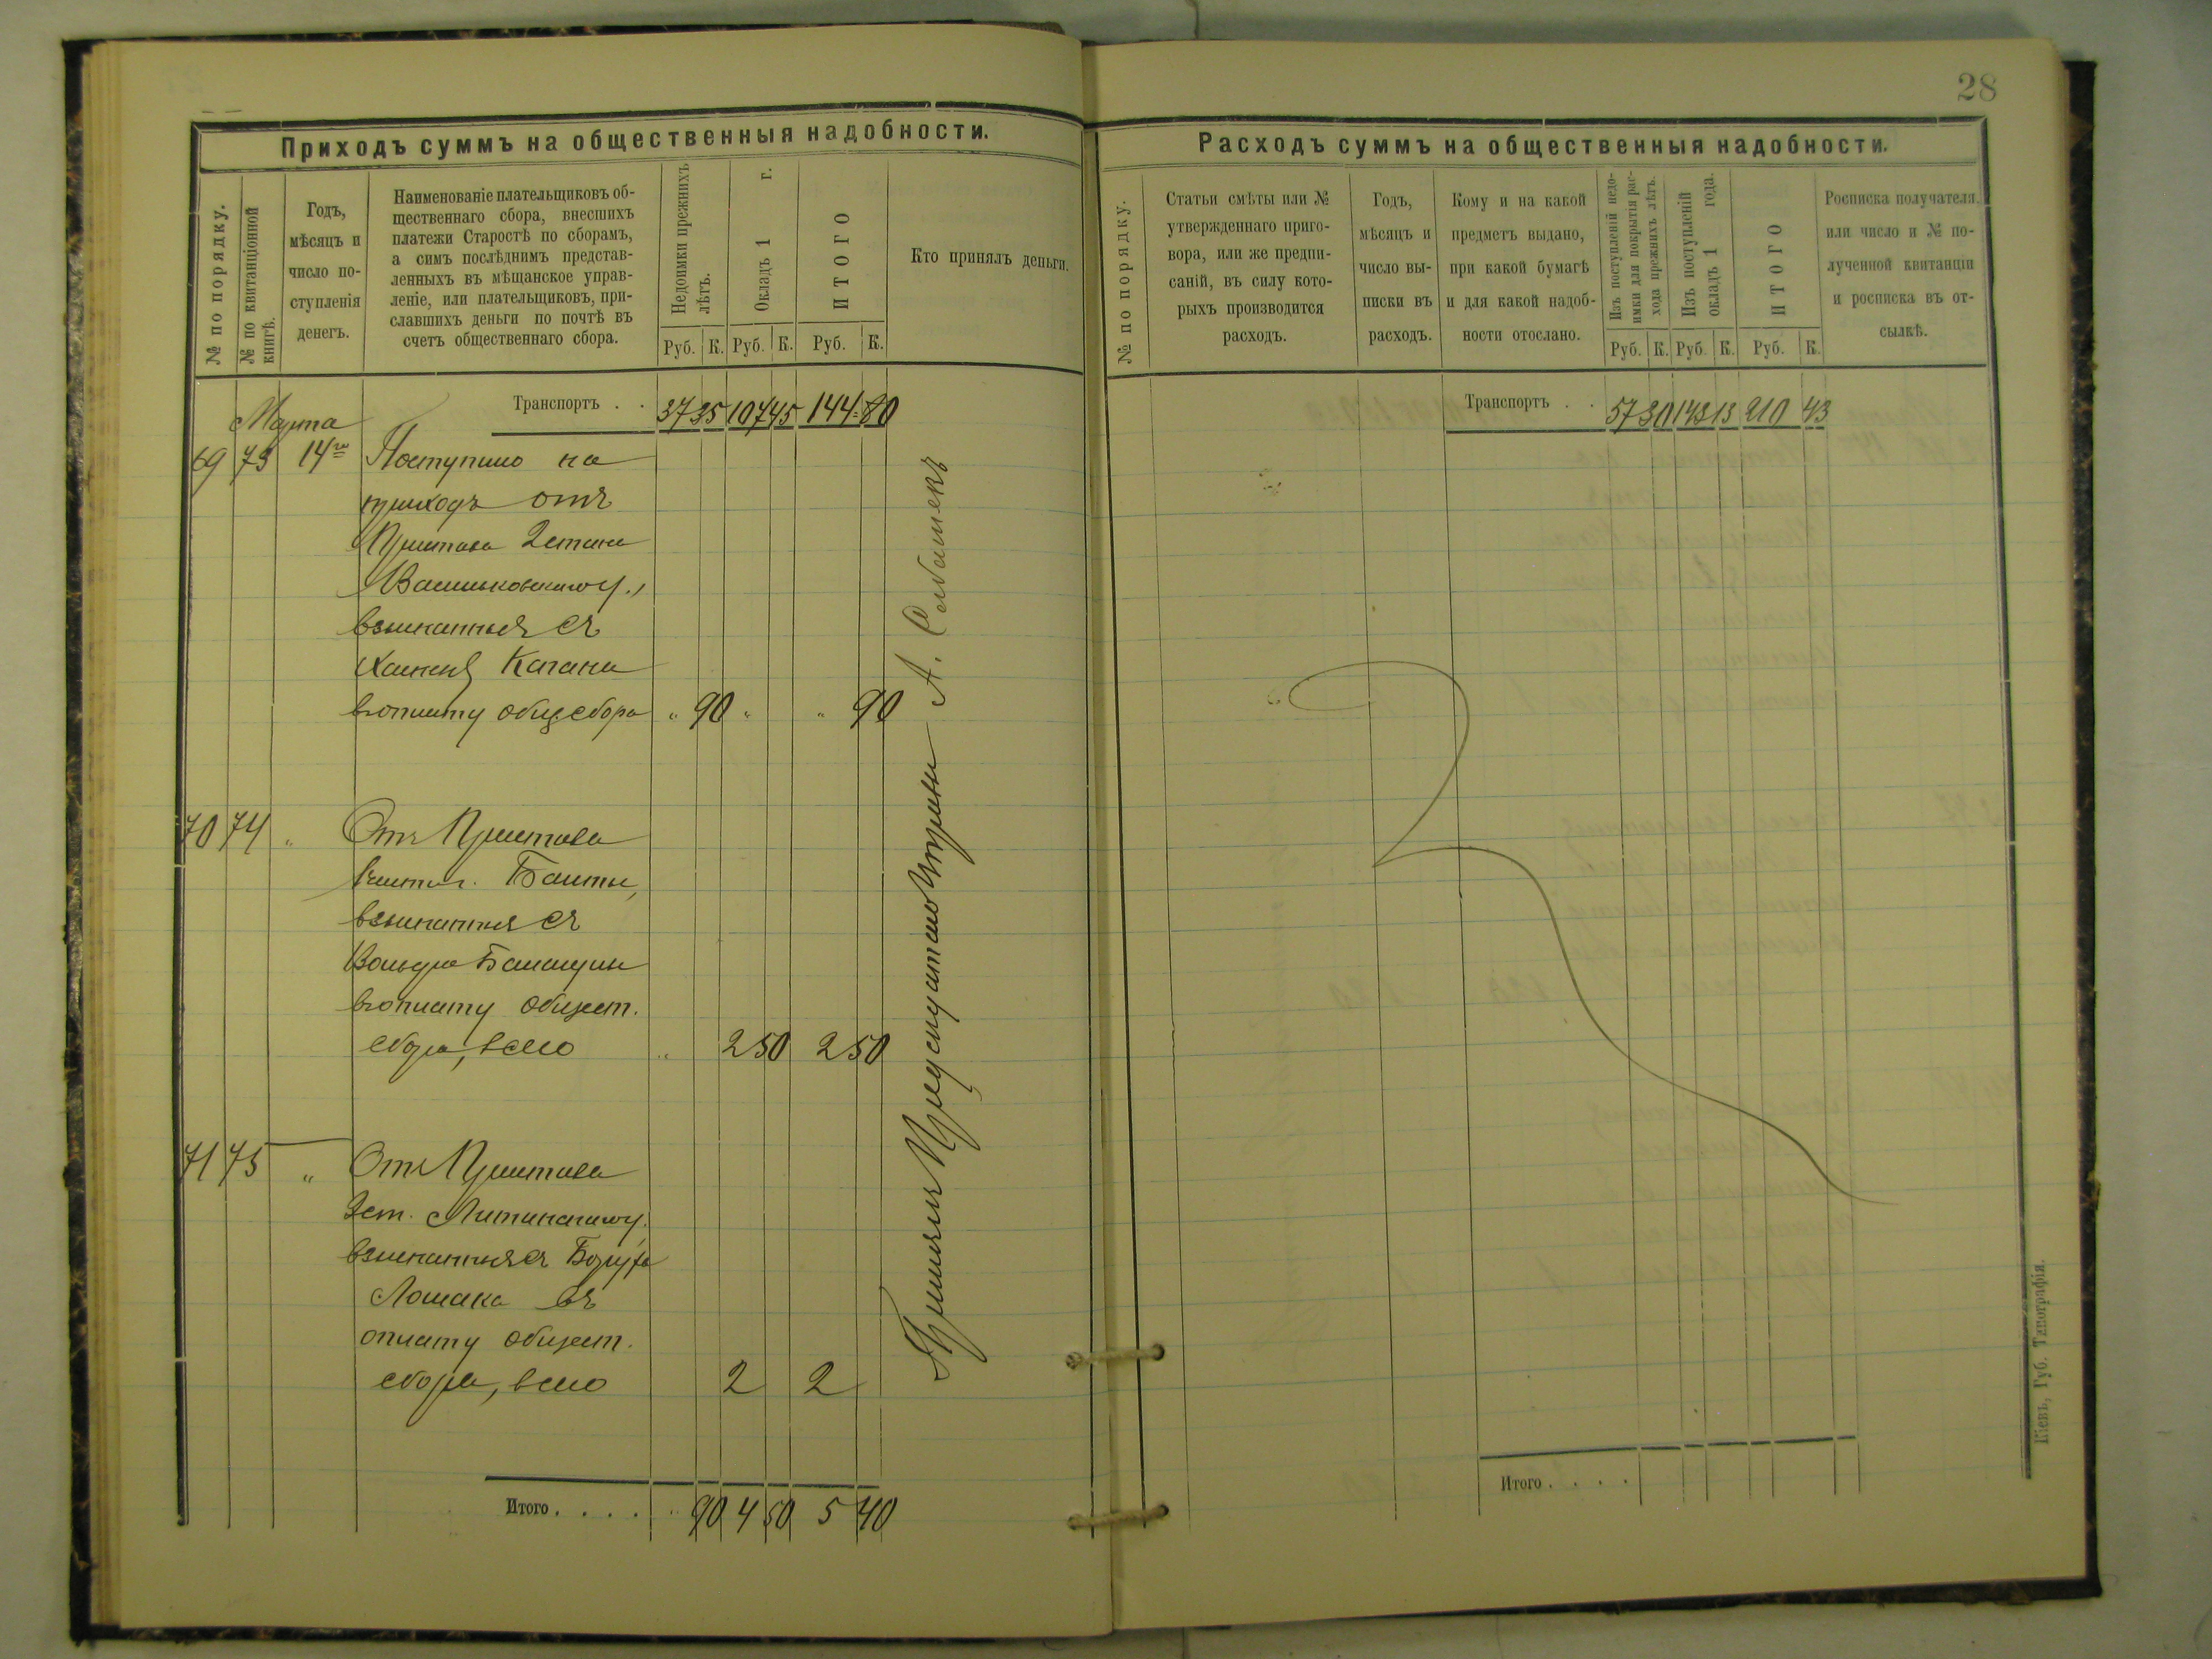 28
Приходъ суммъ на общественныя надобности.
№ по порядку.
№ по квитанціонной
книгѣ.
Годъ,
мѣсяцъ и
число по-
ступленія
денегъ.
Наименованіе плательщиковъ об-
щественнаго сбора, внесшихъ
платежи Старостѣ по сборамъ,
а симъ послѣднимъ представ-
ленныхъ въ мѣщанское управ-
леніе, или плательщиковъ, при-
славшихъ деньги по почтѣ въ
счетъ общественнаго сбора.
Недоимки прежнихъ
лѣтъ.
Окладъ 1 г.
ИТОГО
Руб. К. Руб. К. Руб. К.
Кто принялъ деньги.
Транспортъ . . 37 35 107 45 144 80
Марта
69 73 14го Поступило на
приходъ отъ
Пристава 2 стана
Васильковскаго у.,
взысканныя съ
Каганa
въ оплату общ. сбора " 90 " " 90
70 74 " Отъ Пристава
Балты,
взысканныя съ
въ оплату общест.
сбора, всего " 2 50 2 50
71 75 " Отъ Пристава
2 ст. Литинскаго у.
взысканныя съ Боруха
Лошака въ
оплату общест.
сбора, всего 2 2
Итого . . . . " 90 4 50 5 40
А.
Расходъ суммъ на общественныя надобности.
№ по порядку.
Статьи смѣты или №
утвержденнаго приго-
вора, или же предпи-
саній, въ силу кото-
рыхъ производится
расходъ.
Годъ,
мѣсяцъ и
число вы-
писки въ
расходъ.
Кому и на какой
предметъ выдано,
при какой бумагѣ
и для какой надоб-
ности отослано.
Изъ поступленій недо-
имки для покрытія рас-
хода прежнихъ лѣтъ.
Изъ поступленій
окладъ 1 года.
ИТОГО
Руб. К. Руб. К. Руб. К.
Росписка получателя.
или число и № по-
лученной квитанціи
и росписка въ от-
сылкѣ.
Транспортъ . . 57 30 143 13 210 43
Итого . . . .
Кіевъ, Губ. Типографія.